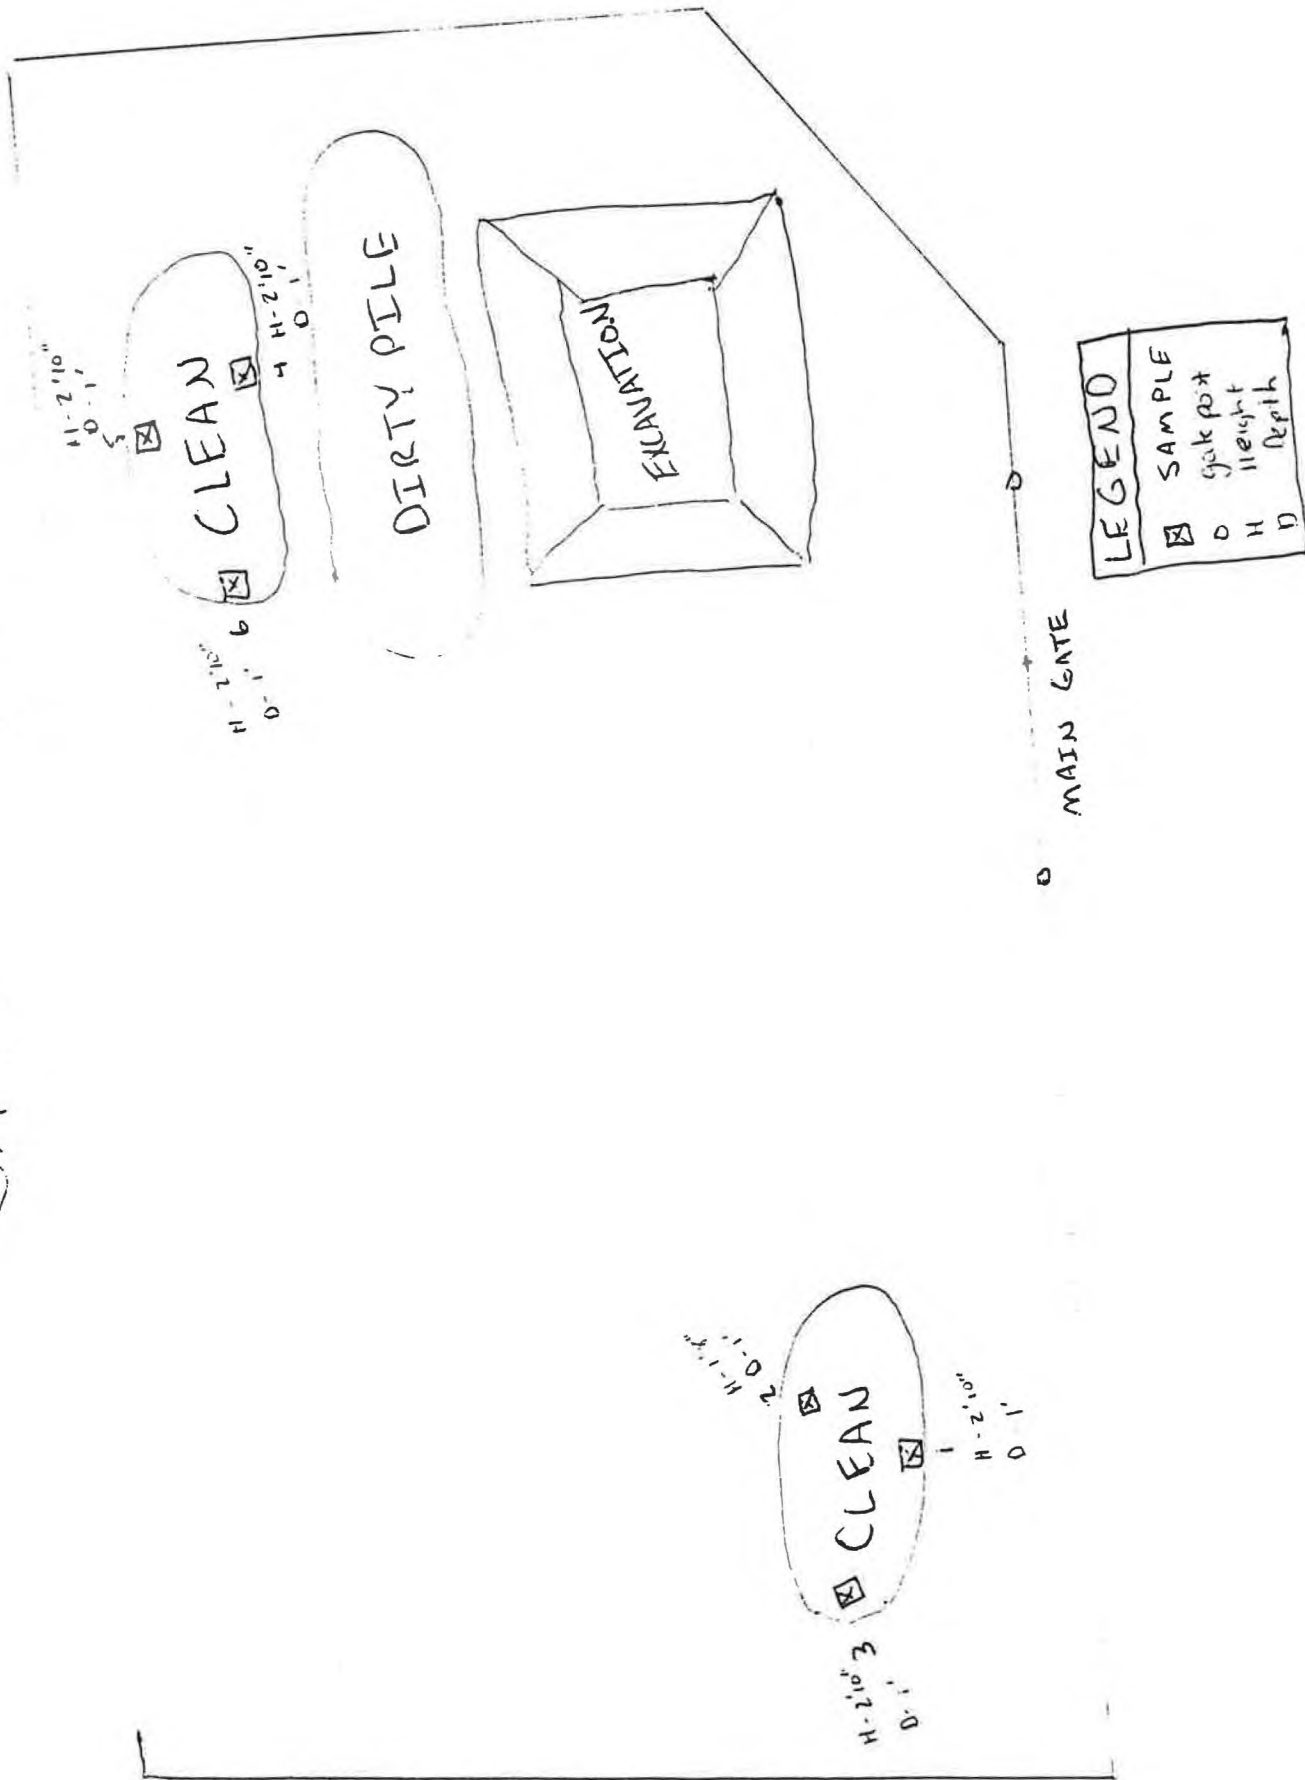 H - 2'10"
D - 1'
5
CLEAN
4 H - 2'10"
D 1'
6
H - 2'10"
D - 1'
DIRTY PILE
EXCAVATION
MAIN GATE
LEGEND
SAMPLE
O gate post
H Height
D Depth
2 D - 1'
CLEAN
1
H - 2'10"
D - 1'
H - 2'10" 3
D - 1'